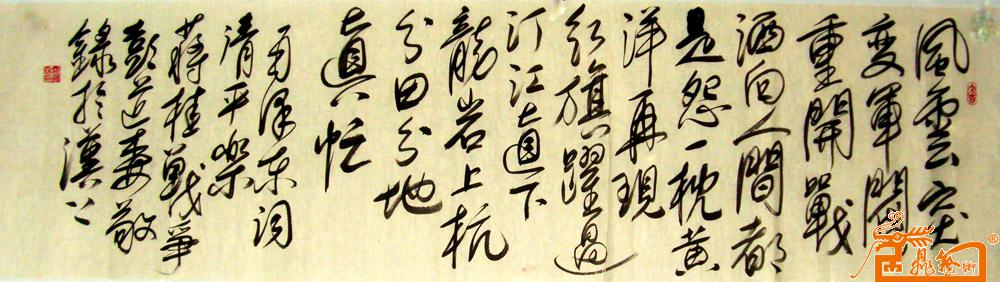 風雲突
變軍閥
重開戰
洒向人間都
是怨一枕黄
洋再現
红旗躍過
汀江直下
龍岩上杭
分田分地
真忙
毛澤東詞
清平樂
蔣桂戰爭
彭敬
錄於漢上